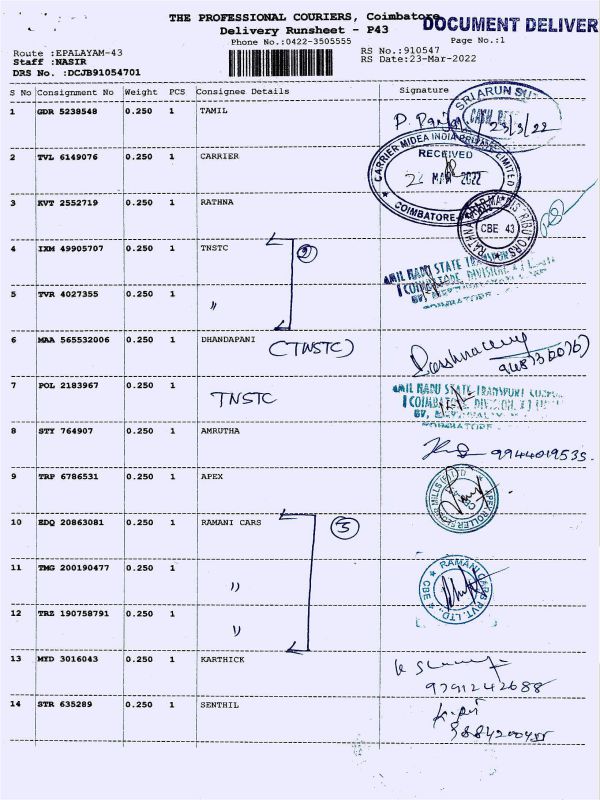 THE PROFESSIONAL COURIERS, Coimbatore
DOCUMENT DELIVER
Delivery Runsheet - P43
Phone No.:0422-3505555
Page No.:1
Route :EPALAYAM-43
RS No.:910547
Staff :NASIR
RS Date:23-Mar-2022
DRS No. :DCJB91054701
S No Consignment No Weight PCS Consignee Details Signature
1 GDR 5238548 0.250 1 TAMIL
SRI ARUN
23/3/22
2 TVL 6149076 0.250 1 CARRIER
CARRIER MIDEA INDIA PRIVATE LIMITED
RECEIVED
MAR 2022
COIMBATORE
3 KVT 2552719 0.250 1 RATHNA
RATHNA PHARMA DISTRIBUTORS
CBE 43
4 IXM 49905707 0.250 1 TNSTC
2
5 TVR 4027355 0.250 1 〃
6 MAA 565532006 0.250 1 DHANDAPANI
(TNSTC)
7 POL 2183967 0.250 1 TNSTC
8 STY 764907 0.250 1 AMRUTHA
9944019535.
9 TRP 6786531 0.250 1 APEX
10 EDQ 20863081 0.250 1 RAMANI CARS
11 TMG 200190477 0.250 1 〃
RAMANI CARS PVT. LTD.,
CBE
12 TRZ 190758791 0.250 1 〃
13 MYD 3016043 0.250 1 KARTHICK
9791242688
14 STR 635289 0.250 1 SENTHIL